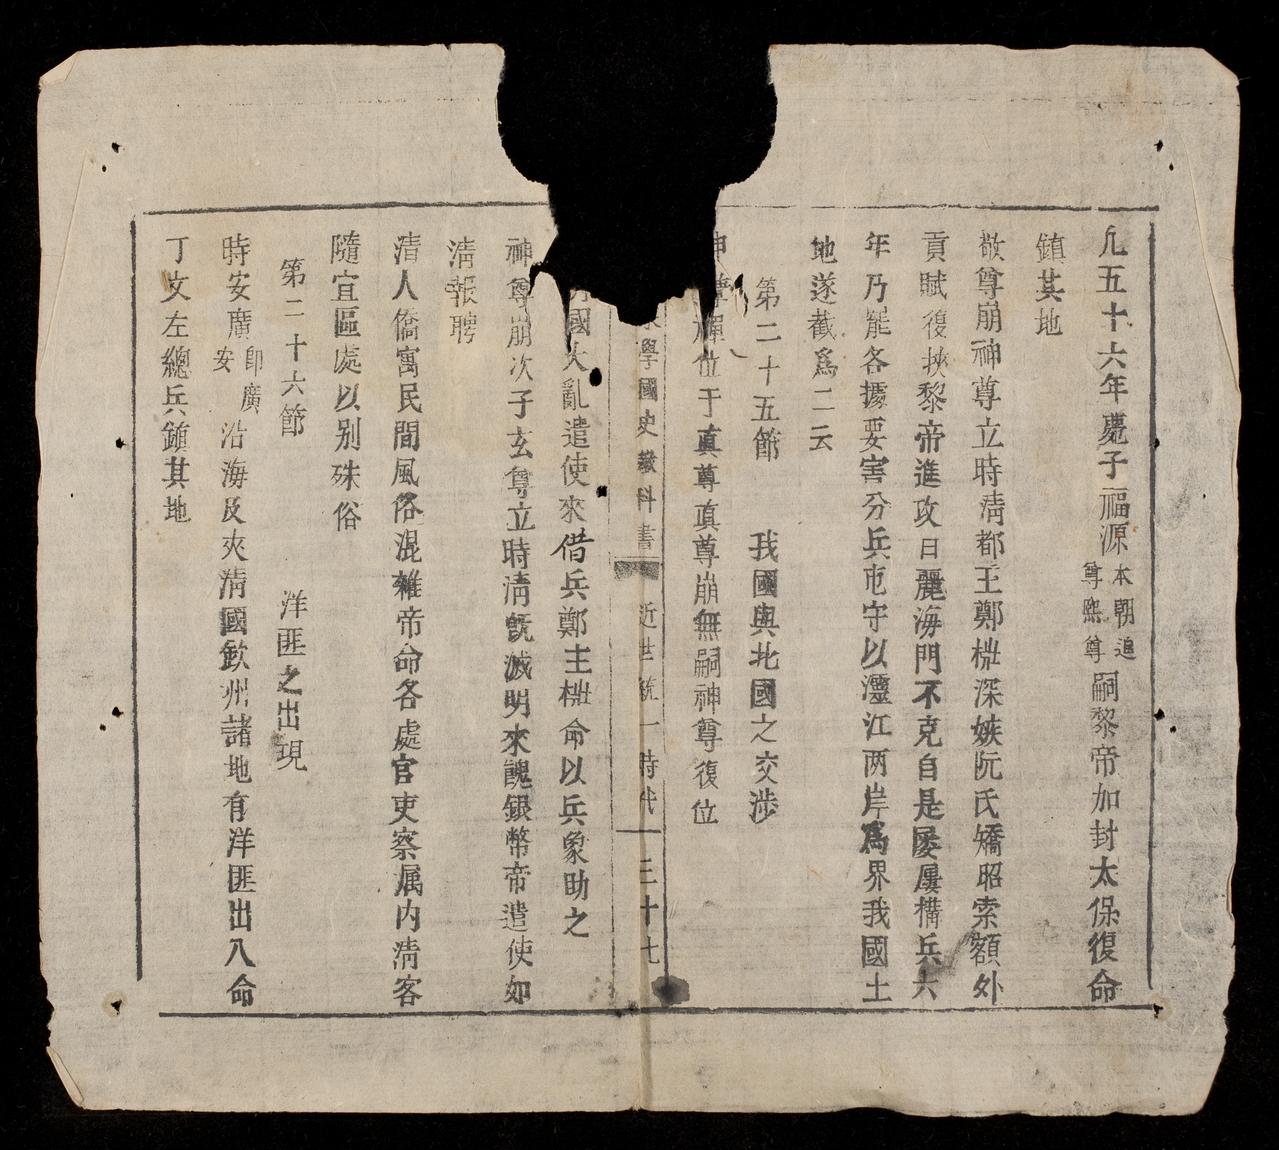 凢五十六年慶子福源本朝追尊熙尊嗣黎帝加封太保復命
鎮其地
敬尊崩神尊立時清都王鄭梉深嫉阮氏矯昭索額外
貢賦復挾黎帝進攻日麗海門不克自是屡屢搆兵六
年乃罷各據要害分兵屯守以𤅷江两岸爲界我國土
地遂截爲二云
第二十五節　我國與北國之交涉
神尊禪位于真尊真尊崩無嗣神尊復位
學國史教科書　近世統一時代　三十七
國大亂遣使來借兵鄭主梉命以兵象助之
神尊崩次子玄尊立時清既滅明來醜銀幣帝遣使如
清報聘
清人僑寓民間風俗混雜帝命各處官吏察属内清客
隨宜區處以别殊俗
第二十六節　洋匪之出現
時安廣即廣安沿海及夾清國欽州諸地有洋匪出入命
丁文左總兵鎮其地